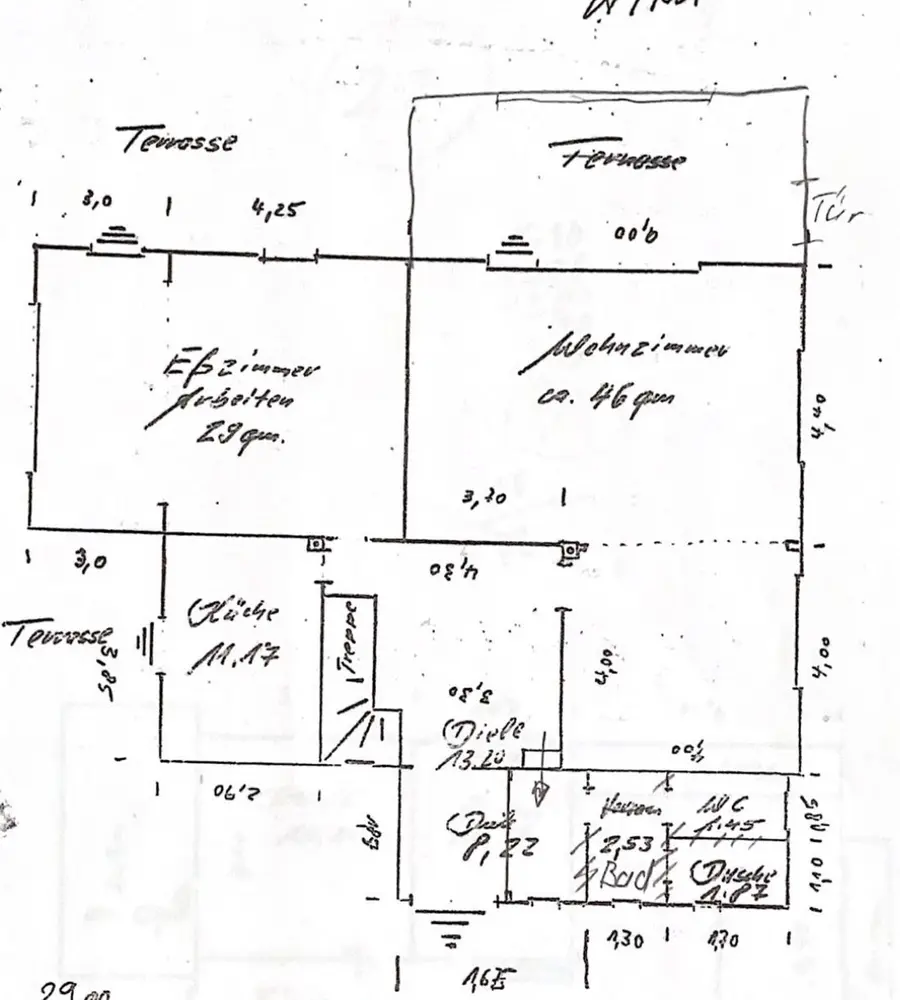 Terrasse
Terrasse
Tür
3,0
4,25
9,00
Eßzimmer
Arbeiten
29 qm.
Wohnzimmer
ca. 46 qm
4,40
3,70
3,0
4,30
Terrasse
3,85
Küche
11,17
Treppe
4,00
4,00
3,30
Diele
2,90
8,22
2,53
Bad
WC
1.45
Dusche
1.87
1,85
1,10
1,30
1,70
29,00